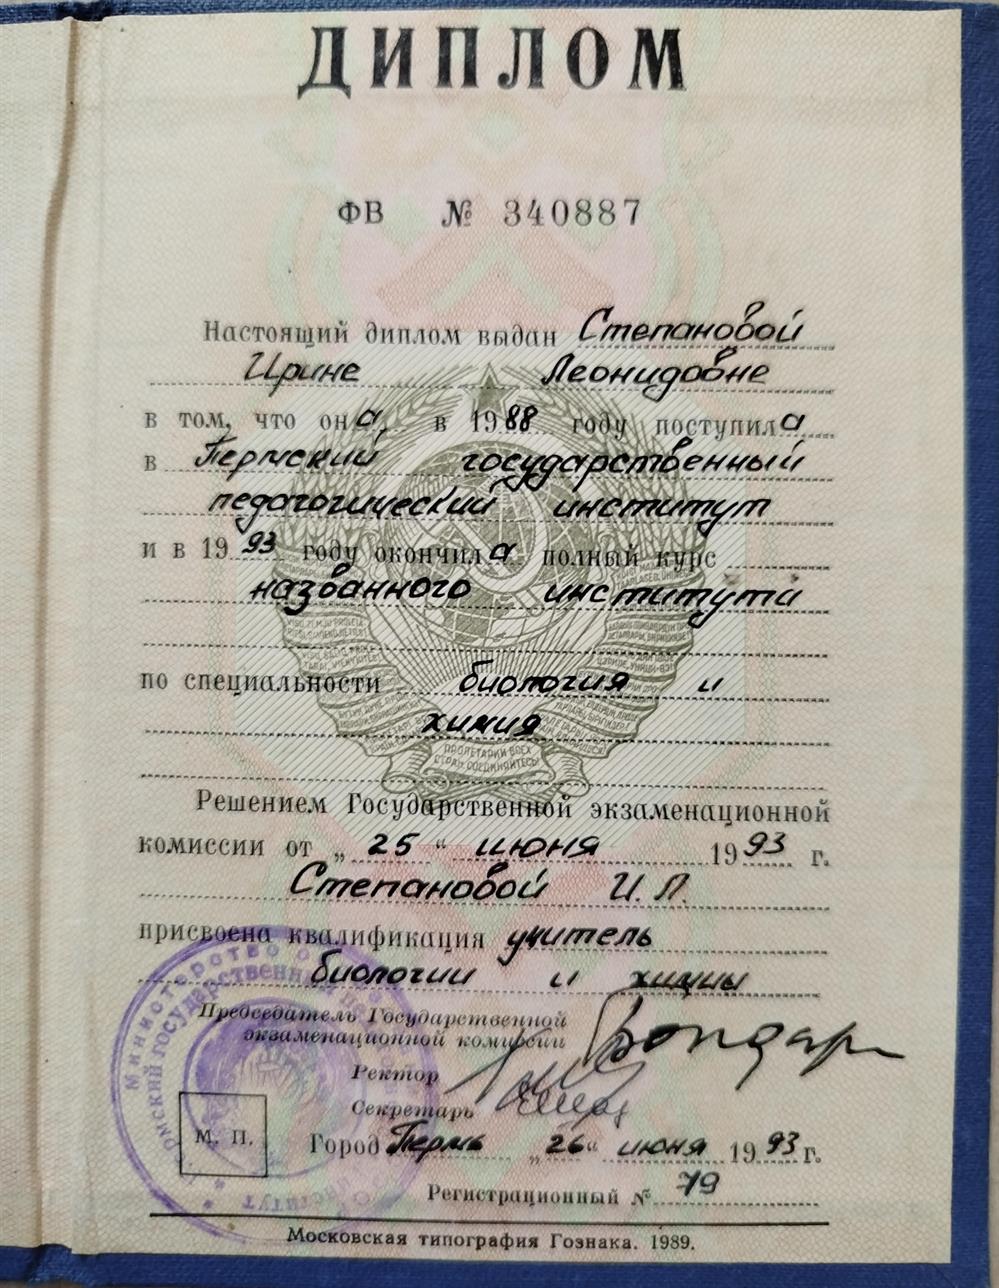 ДИПЛОМ
ФВ № 340887
Настоящий диплом выдан Степановой
Ирине Леонидовне
в том, что она в 1988 году поступила
в Пермский государственный
педагогический институт
и в 1993 году окончила полный курс
названного института
по специальности биология и
химия
ПРОЛЕТАРИИ ВСЕХ
СТРАН, СОЕДИНЯЙТЕСЬ!
Решением Государственной экзаменационной
комиссии от „25“ июня 1993 г.
Степановой И.Л.
присвоена квалификация учитель
биологии и химии
Председатель Государственной
экзаменационной комиссии Бондар
Ректор
Секретарь
М. П.
Город Пермь „26“ июня 1993 г.
Регистрационный № 79
Московская типография Гознака. 1989.